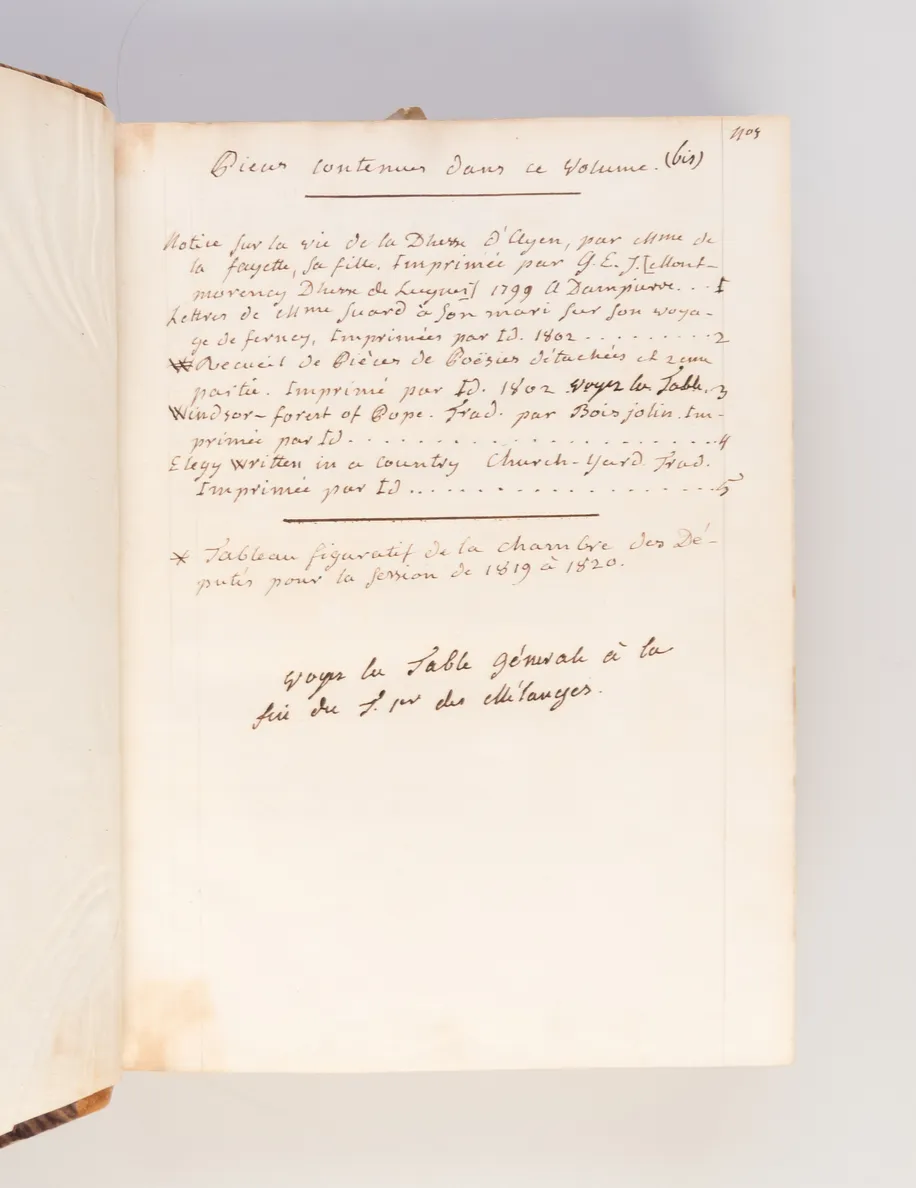 Pieces contenues dans ce Volume. (bis)
Notice sur la vie de la Dhesse d'Ayen, par Mme de
la fayette, sa fille. Imprimée par G. E. J. [Mont-
morency Dhesse de Luynes] 1799 A Dampierre. . . 1
Lettres de Mme Suard à son mari sur son voya-
ge de ferney, Imprimées par Id. 1802 . . . . . . . . . 2
Recueil de Pièces de Poësies détachées et 2eme
partie. Imprimé par Id. 1802 voyez la Table. 3
Windsor-forest of Pope. Trad. par Boisjolin. Im-
primée par Id. . . . . . . . . . . . . . . . . . . . . . . . 4
Elegy written in a Country Church-Yard. Trad.
Imprimée par Id . . . . . . . . . . . . . . . . . . . . 5
* Tableau figuratif de la chambre des Dé-
putés pour la session de 1819 à 1820.
voyez la Table générale à la
fin du T. 1er des Mélanges.